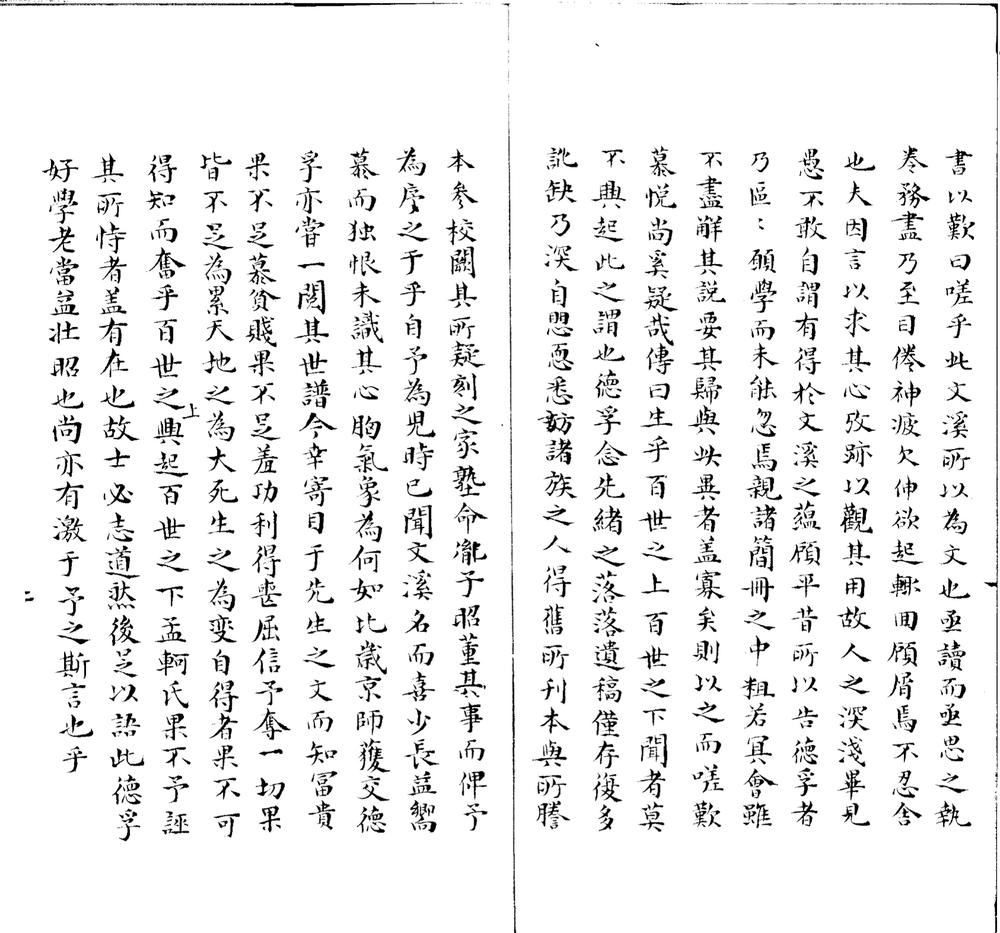 書以歎曰嗟乎此文溪所以為文也亟讀而亟思之執
卷務盡乃至目倦神疲欠伸欲起輙回顧屑焉不忍舍
也夫因言以求其心攷跡以觀其用故人之深淺畢見
愚不敢自謂有得於文溪之蘊顧平昔所以告德孚者
乃區〻願學而未能忽焉親諸簡冊之中粗若冥會雖
不盡觧其說要其歸與此異者盖寡矣則以之而嗟歎
慕悅尚奚疑哉傳曰生乎百世之上百世之下聞者莫
不興起此之謂也德孚念先緒之落落遺稿僅存復多
訛缺乃深自思惡悉訪諸族之人得舊所刊本與所謄
本參校闕其所疑刻之家塾命胤子昭董其事而俾予
為序之于乎自予為兒時已聞文溪名而喜少長益嚮
慕而独恨未識其心胸氣象為何如比歲京師獲交德
孚亦嘗一閱其世譜今幸寄目于先生之文而知冨貴
果不足慕貧賤果不足羞功利得喪屈信予奪一切果
皆不足為累天地之為大死生之為变自得者果不可
得知而奮乎百世之上興起百世之下孟軻氏果不予誣
其所恃者盖有在也故士必志道然後足以語此德孚
好學老當益壮昭也尚亦有激于予之斯言也乎
二